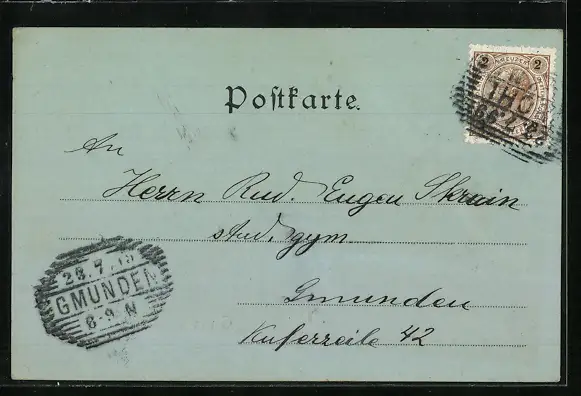 2 KREUZER 2
THO
Postkarte.
An
Herrn Rud. Eugen Skruin
stud. gym
Gmunden
Kuferzeile 42
28.7.
GMUNDEN
6-9 N